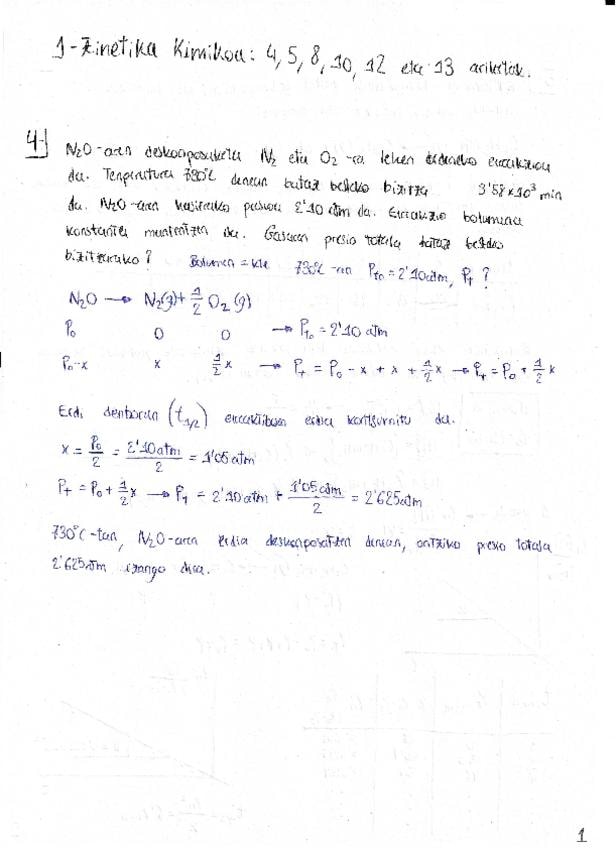 1-Zinetika Kimikoa: 4, 5, 8, 10, 12 eta 13 ariketak.
4-) N₂O-aren deskonposaketa N₂ eta O₂-ra lehen ordeneko erreakzioa
da. Tenperatura 730ºC denean bataz besteko bizitza 3'58×10³ min
da. N₂O-aren hasierako presioa 2'10 atm da. Erreakzio bolumena
konstante mantentzen da. Gasaren presio totala bataz besteko
bizitzarako? Bolumena = kte 730ºC-an P_{To} = 2'10 atm, P_T ?
N₂O → N₂(g) + 1/2 O₂(g)
P₀ 0 0 → P_{To} = 2'10 atm
P₀-x x 1/2 x → P_T = P₀ - x + x + 1/2 x → P_T = P₀ + 1/2 x
Erdi denboran (t_{1/2}) erreaktiboen erdia kontsumitu da.
x = P₀/2 = 2'10 atm/2 = 1'05 atm
P_T = P₀ + 1/2 x → P_T = 2'10 atm + 1'05 atm/2 = 2'625 atm
730ºC-tan, N₂O-aren erdia deskonposatzen denean, ontziko presio totala
2'625 atm izango dira.
1